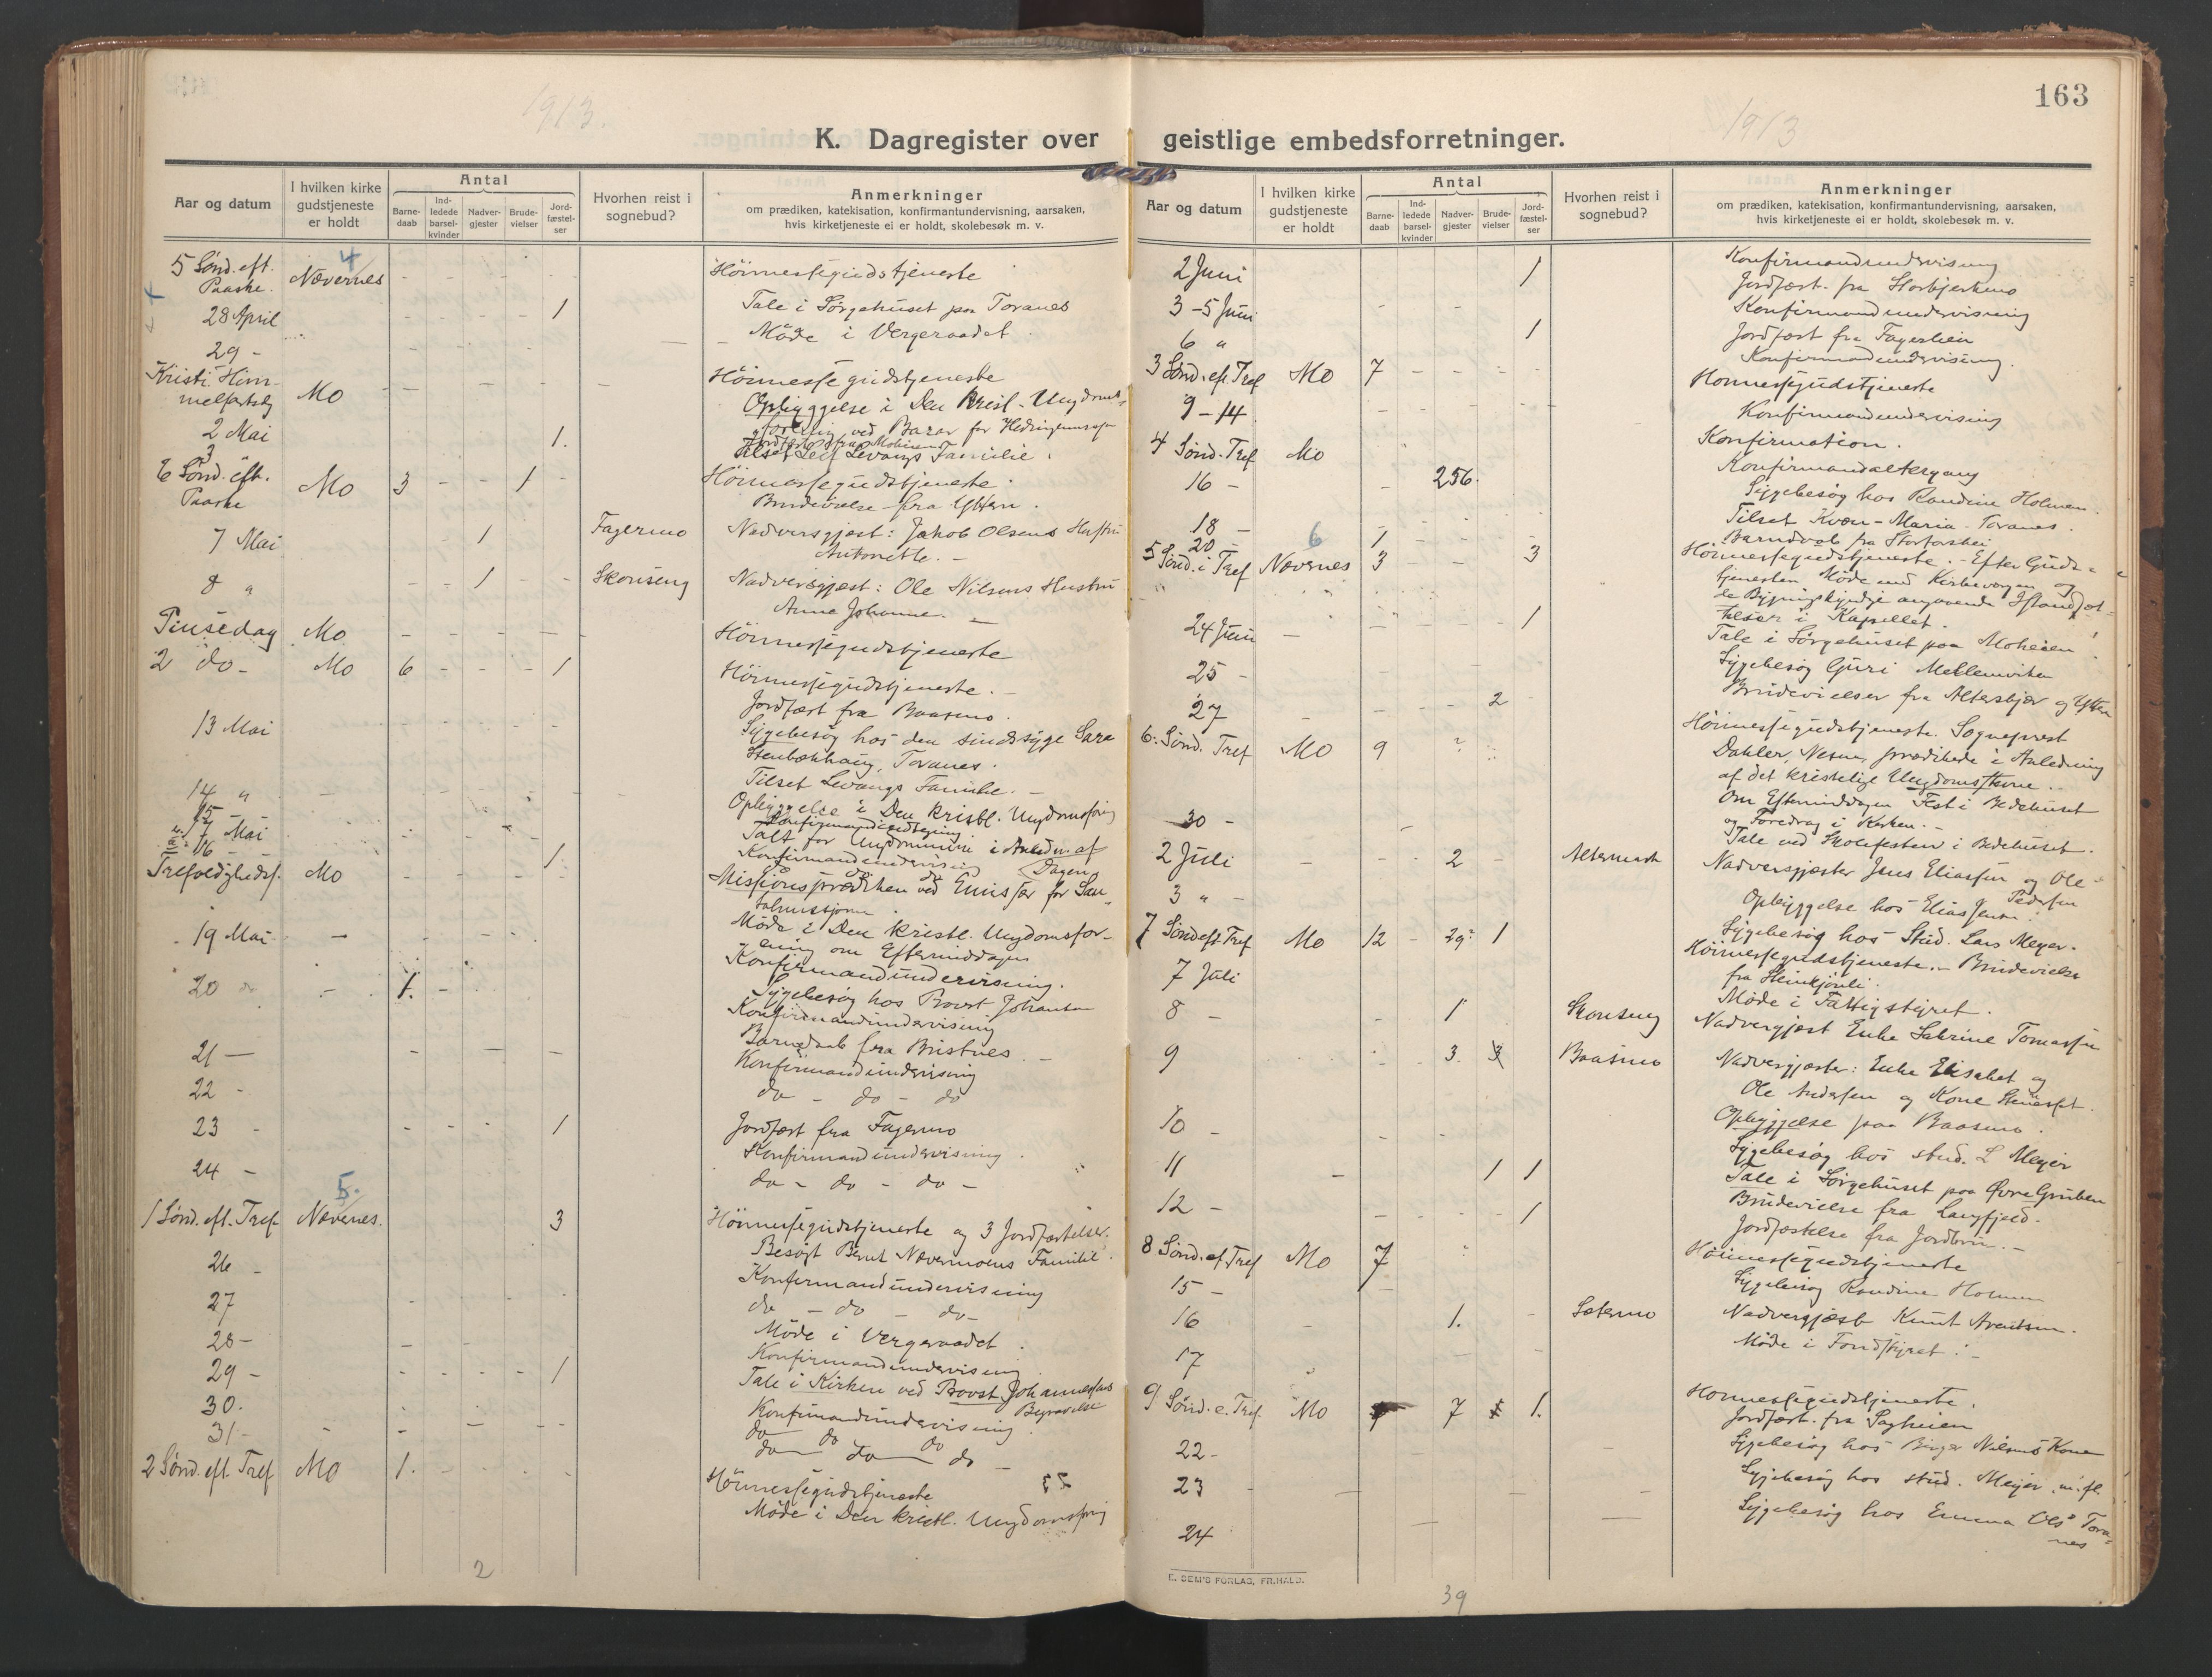 163
1913.
1913
K. Dagregister over geistlige embedsforretninger.
Aar og datum
I hvilken kirke gudstjeneste er holdt
Antal
Barne-daab
Ind-ledede barsel-kvinder
Nadver-gjester
Brude-vielser
Jord-fæstel-ser
Hvorhen reist i sognebud?
Anmerkninger
om prædiken, katekisation, konfirmantundervisning, aarsaken,
hvis kirketjeneste ei er holdt, skolebesøk m. v.
5 Sønd. eft. Paaske. Nævernes 4 Höimessegudstjeneste
28 April 1 Tale i Sørgehuset paa Toranes
29 - Möde i Vergeraadet
Kristi Himmelfartsdg Mo Höimessegudstjeneste
2 Mai Opbyggelse i Den Kristl. Ungdoms-
ved Bazar for
3 1. Tilset Leif Levangs Familie.
6 Sønd. eft. Paaske Mo 3 - - 1 - Höimessegudstjeneste.
Brudevielse fra Yttern.
7 Mai 1 Fagermo Nadvergjest: Jakob Olsens Hustru
Antonette. -
8 " 1 Skonseng Nadvergjest: Ole Nilsens Hustru
Anne Johanne. -
Pinsedag Mo Höimessegudstjeneste
2 do - Mo 6 - - - 1 Höimessegudstjeneste. -
Jordfæst fra Baasmo.
13 Mai Sygebesøg hos den sindssyge Sara
Toranes.
14 " Tilset Levangs Familie. -
15 Opbyggelse i Den kristl. Ungdomsforng
17 Mai Konfirmandundervisning
16 - Talt for Ungdommen i Anledn. af Dagen
1 Konfirmandundervisning
Trefoldighedsf. Mo Missionsprædiken ved Emissær for San-
talmissjonen.
Möde i Den kristl. Ungdomsfor-
ening om Eftermiddagen
19 Mai - Konfirmandundervisning.
Sygebesøg hos Provst Johansen
20 do - 1. - Konfirmandundervisning
Barnedaab fra Bustnes. -
21 - Konfirmandundervisning
22 - do - do - do
23 - 1 Jordfæst fra Fagermo
Konfirmandundervisning.
24 - do - do - do -
1 Sønd. eft. Tref. Nævernes. 5. 3 Höimessegudstjeneste og 3 Jordfæstelser.
Besøgt Bernt Nævermoens Familie.
26 - Konfirmandundervisning
27 do - do - do -
28 - Möde i Vergeraadet.
Konfirmandundervisning
29 - 1 Tale i Kirken ved Provst Johannesens Begravelse
30. Konfirmandundervisning.
31 - do do do
do - do - do -
2 Sønd. eft. Tref Mo 1. Höimessegudstjeneste
Möde i Den kristl. Ungdomsforng
2
Aar og datum
I hvilken kirke gudstjeneste er holdt
Antal
Barne-daab
Ind-ledede barsel-kvinder
Nadver-gjester
Brude-vielser
Jord-fæstel-ser
Hvorhen reist i sognebud?
Anmerkninger
om prædiken, katekisation, konfirmantundervisning, aarsaken,
hvis kirketjeneste ei er holdt, skolebesøk m. v.
2 Juni 1 Konfirmandundervisning
Jordfæst. fra Storbjerkmo
3 - 5 Juni Konfirmandundervisning
6 " 1 Jordfæst fra Fagerlien
Konfirmandundervisning.
3 Sønd. ef. Tref Mo 7 Höimessegudstjeneste
9 - 14. Konfirmandundervisning
4 Sønd. Tref Mo Konfirmation.
16 - 256. Konfirmandaltergang
Sygebesøg hos Randine Holmen.
18 - Tilset Kvæn-Maria - Toranes.
20 - 1 Barnedaab fra Storforshei
5 Sønd. i Tref Nævernes 6 3 3 Höimessegudstjeneste. - Efter Guds-
tjenesten Möde med Kirkevergen og
de Bygningskyndige angaaende Istandsæt-
telser i Kapellet.
24 Juni - 1 Tale i Sørgehuset paa Moheien
25 - Sygebesøg Guri Mellemviken
27 2 Brudevielser fra Altersbjer og Yttern
6. Sønd. Tref Mo 9 Höimessegudstjeneste. Sogneprest
Dahler, Nesna, prædikede i Anledning
af det kristelige Ungdomsstevne. -
Om Eftermiddagen Fest i Bedehuset
og Foredrag i Kirken. -
30 - Tale ved Skolefesten i Bedehuset.
2 Juli 2 Altermark Nadvergjester Jens Eliassen og Ole Pedersen
3 " - Opbyggelse hos Elias Jensen.
Sygebesøg hos Stud. Lars Meyer.
7 Sønd eft Tref Mo 12 - 29. 1 Höimessegudstjeneste. - Brudevielse
fra Steinkjønli.
7 Juli Möde i Fattigstyret.
8 - 1 Skonseng Nadvergjest Enke Sabrine Tomassen
9 3. 3 Baasmo Nadvergjester: Enke Elisabet og
Ole Andersen og Kone
10 - Opbyggelse paa Baasmo.
Sygebesøg hos stud. L Meyer
11 - 1 1 Tale i Sørgehuset paa Øvre Gruben
Brudevielse fra Langfjeld.
12 - 1 Jordfæstelse fra Jordbrun. -
8 Sønd. ef Tref Mo 7 Höimessegudstjeneste
15 - Sygebesøg Randine Holmen
16 1. Sætermo Nadvergjest Knut Arentsen.
17 Möde i Fondstyret. -
9 Sønd. e. Tref. Mo 7 1. Höimessegudstjeneste.
Jordfæst. fra Sagheien
22 - Sygebesøg hos Birger Nilsens Kone
23 - Sygebesøg hos stud. Meyer m. fl.
24 Sygebesøg hos Emma Ols° Tora-
nes
39
E. SEM'S FORLAG, FR.HALD.